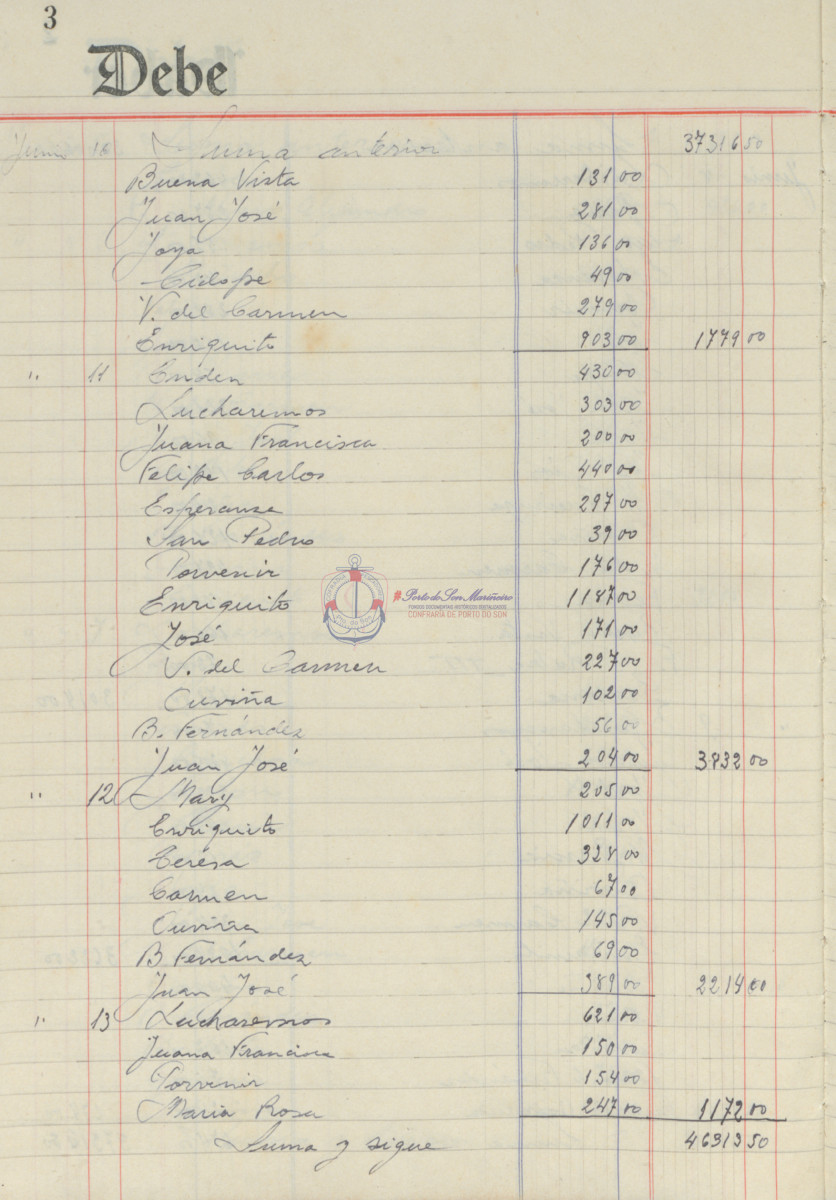 3
Debe
Junio 10 Suma anterior 37316 50
Buena Vista 131 00
Juan José 281 00
Joya 136 00
Ciclope 49 00
V. del Carmen 279 00
Enriquito 903 00 1779 00
" 11 Enden 430 00
Lucharemos 303 00
Juana Francisca 200 00
Felipe Carlos 440 00
Esperanza 297 00
San Pedro 39 00
Porvenir 176 00
Enriquito 1187 00
José 171 00
V. del Carmen 227 00
Cuviña 102 00
B. Fernández 56 00
Juan José 204 00 3832 00
" 12 Mary 205 00
Enriquito 1011 00
Teresa 328 00
Carmen 67 00
Cuviña 145 00
B Fernández 69 00
Juan José 389 00 2214 00
" 13 Lucharemos 621 00
Juana Francisca 150 00
Porvenir 154 00
Maria Rosa 247 00 1172 00
Suma y sigue 46313 50
#Porto do Son Mariñeiro
FONDOS DOCUMENTAIS HISTÓRICOS DIXITALIZADOS
CONFRARÍA DE PORTO DO SON